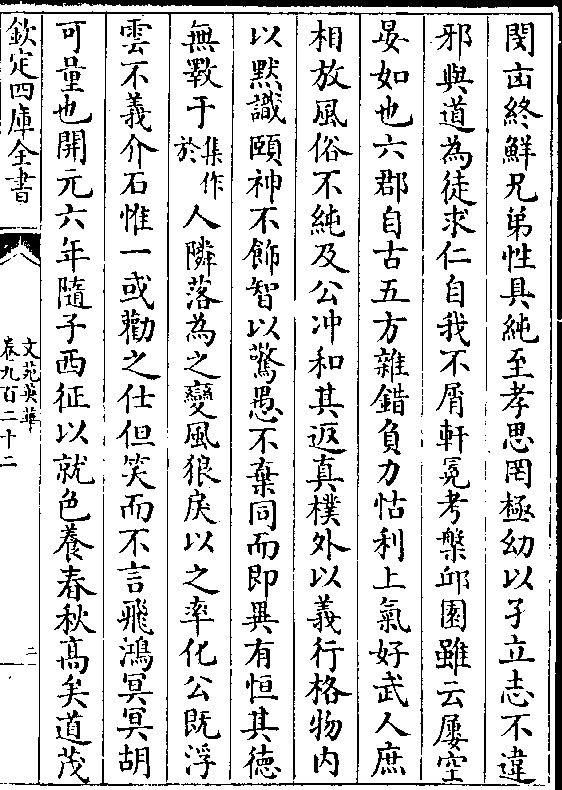 閔凶終鮮兄弟性具純至孝思罔極幼以孑立志不違
邪與道為徒求仁自我不屑軒冕考槃邱園雖云屢空
晏如也六郡自古五方雜錯負力怙利上氣好武人庶
相放風俗不純及公冲和其返真樸外以義行格物内
以默識頤神不飾智以驚愚不棄同而即異有恒其徳
無斁于集作於人隣落為之變風狼戾以之率化公既浮
雲不義介石惟一或勸之仕但笑而不言飛鴻冥冥胡
可量也開元六年隨子西征以就色養春秋髙矣道茂
欽定四庫全書
文苑英華
卷九百二十二
二